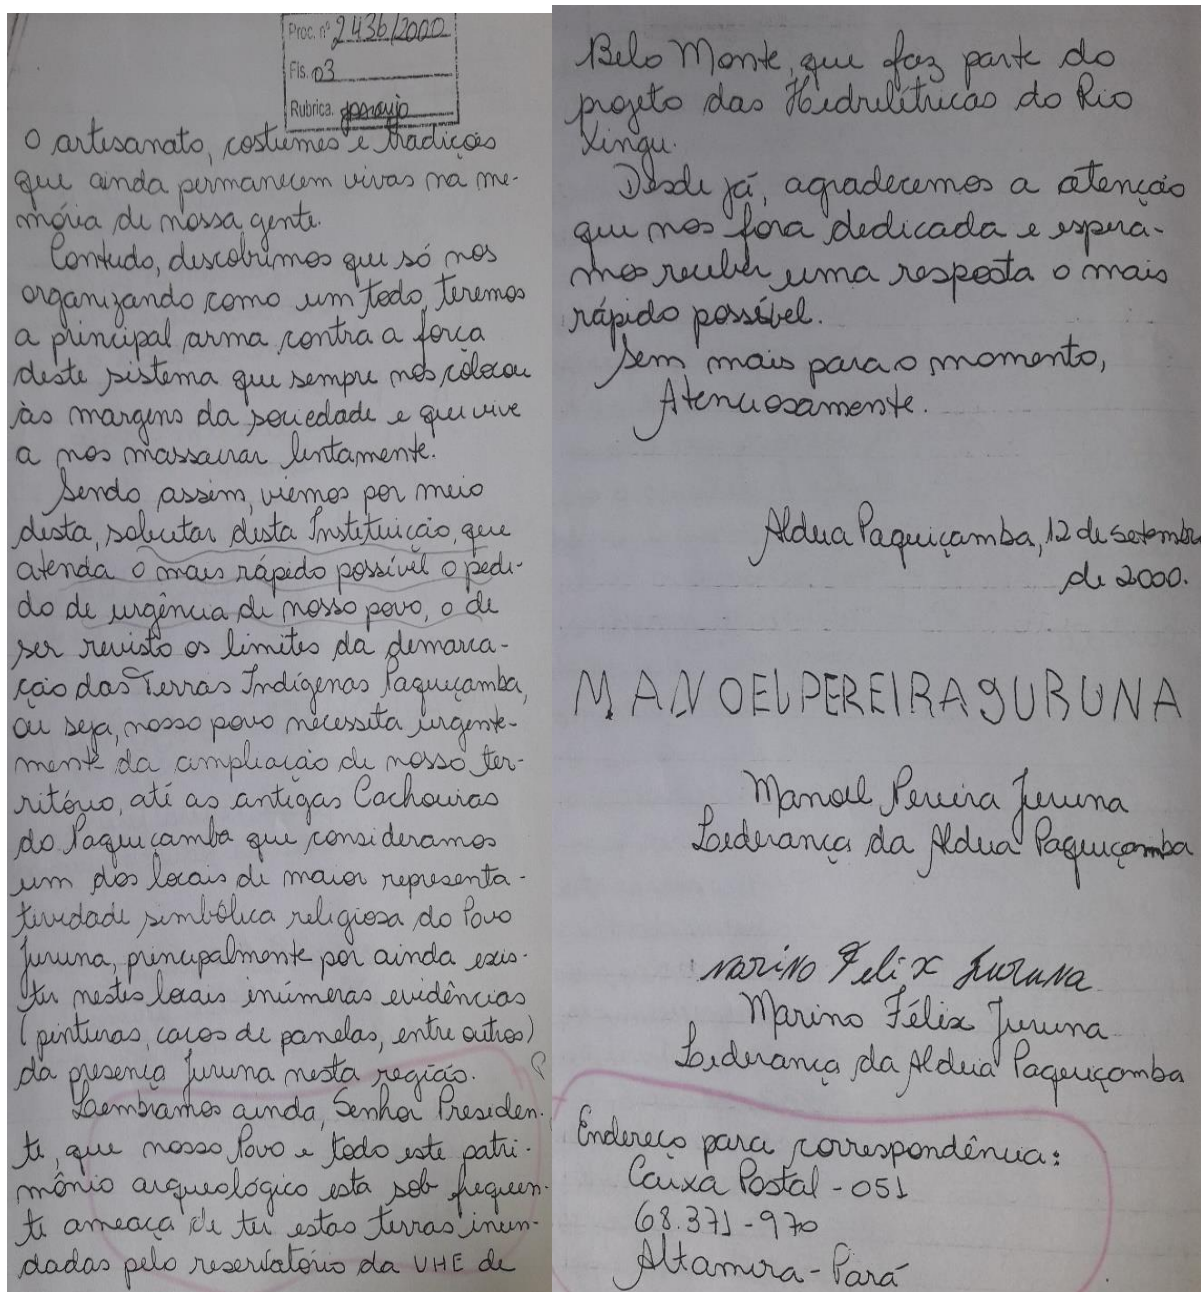 Proc. nº 2436/2000
Fls. 03
Rubrica.
O artesanato, costumes e tradições
que ainda permanecem vivas na me-
mória de nossa gente.
Contudo, descobrimos que só nos
organizando como um todo, teremos
a principal arma contra a força
deste sistema que sempre nos colocou
às margens da sociedade e que vive
a nos massacrar lentamente.
Sendo assim, viemos por meio
desta, solicitar desta Instituição, que
atenda o mais rápido possível o pedi-
do de urgência de nosso povo, o de
ser revisto os limites da demarca-
ção das Terras Indígenas Paquiçamba,
ou seja, nosso povo necessita urgente-
mente da ampliação de nosso ter-
ritório, até as antigas Cachoeiras
do Paquiçamba que consideramos
um dos locais de maior representa-
tividade simbólica religiosa do Povo
Juruna, principalmente por ainda exis-
tir nestes locais inúmeras evidências
(pinturas, cacos de panelas, entre outros)
da presença Juruna nesta região.
Lembramos ainda, Senhor Presiden-
te, que nosso Povo e todo este patri-
mônio arqueológico esta sob frequen-
te ameaça de ter estas terras inun-
dadas pelo reservatório da UHE de
Belo Monte, que faz parte do
projeto das Hidrelétricas do Rio
Xingu.
Desde já, agradecemos a atenção
que nos fora dedicada e espera-
mos receber uma resposta o mais
rápido possível.
Sem mais para o momento,
Atenciosamente.
Aldeia Paquiçamba, 12 de setembro
de 2000.
MANOEL PEREIRA JURUNA
Manoel Pereira Juruna
Liderança da Aldeia Paquiçamba
Marino Felix Juruna
Marino Félix Juruna
Liderança da Aldeia Paquiçamba
Endereço para correspondência:
Caixa Postal - 051
68.371-970
Altamira - Pará